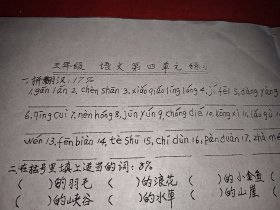 三年级 语文第四单元练习
一、拼翻汉:17%
1.gān lán 2, chèn shān 3, xiǎo qiǎo líng lóng 4, jī fēi 5, dàng yàng
6, qīng cuì 7, nèn hóng 8, jūn yún 9, chóng dié 10, kǒng xì 11,
wén 13, fēn biàn 14, tè shū 15, chí dùn 16, pàn duàn 17,
二、在括号里填上适当的词:8%
( )的羽毛 ( )的浪花 ( )的小金鱼 (
( )的峡谷 ( )的水草 ( )的山崖 (